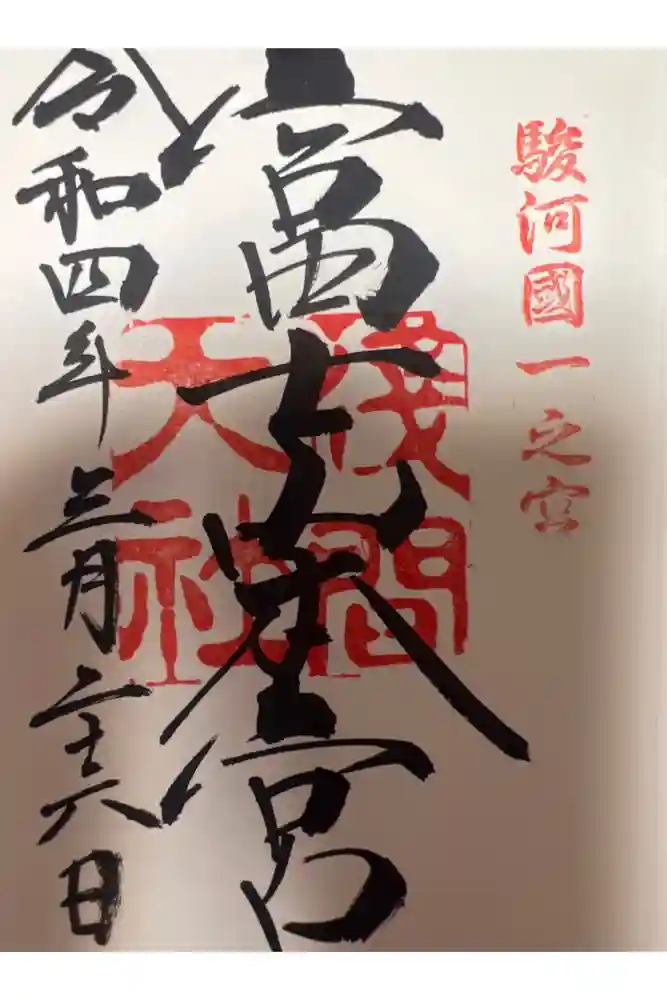 駿河國一之宮
富士山本宮
淺間
大社
令和四年三月二十六日